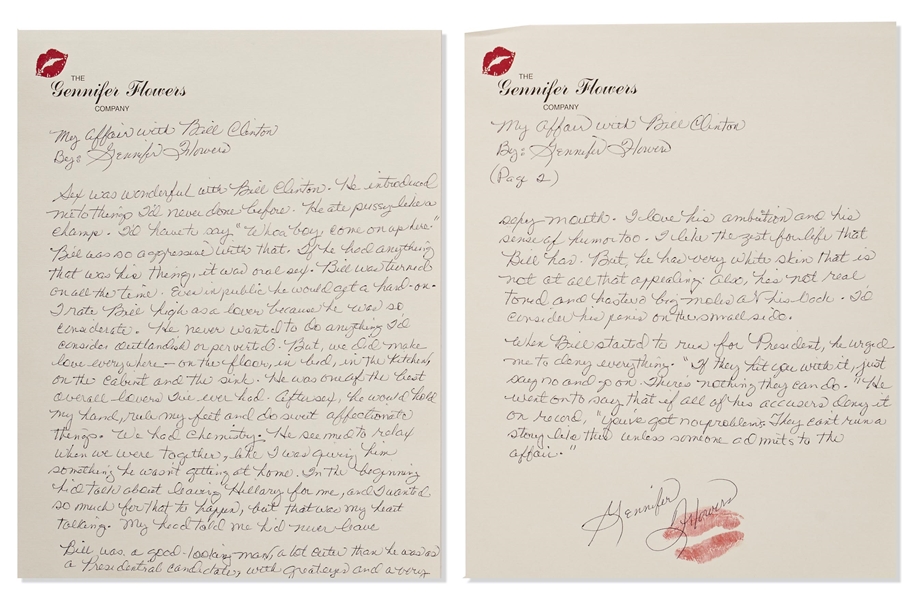 THE
Gennifer Flowers
COMPANY
My Affair with Bill Clinton
By: Gennifer Flowers
Sex was wonderful with Bill Clinton. He introduced
me to things I'd never done before. He ate pussy like a
champ. I'd have to say "Whoa boy come on up here."
Bill was so aggressive with that. If he had anything
that was his thing, it was oral sex. Bill was turned
on all the time. Even in public he would get a hard-on.
I rate Bill high as a lover because he was so
considerate. He never wanted to do anything I'd
consider outlandish or perverted. But, we did make
love everywhere - on the floor, in bed, in the kitchen,
on the cabinet and the sink. He was one of the best
overall lovers I've ever had. After sex, he would hold
my hand, rub my feet and do sweet affectionate
things. We had chemistry. He seemed to relax
when we were together, like I was giving him
something he wasn't getting at home. In the beginning
he'd talk about leaving Hillary for me, and I wanted
so much for that to happen, but that was my heart
talking. My head told me he'd never leave
Bill was a good-looking man, a lot cuter than he was as
a Presidential candidate, with great eyes and a very
THE
Gennifer Flowers
COMPANY
My Affair with Bill Clinton
By: Gennifer Flowers
(Page 2)
sexy mouth. I love his ambition and his
sense of humor too. I like the zest for life that
Bill has. But, he has very white skin that is
not at all that appealing; also, he's not real
toned and has two big moles on his back. I'd
consider his penis on the small side.
When Bill started to run for President, he urged
me to deny everything. "If they hit you with it, just
say no and go on. There's nothing they can do." He
went on to say that if all of his accusers deny it
on record, "you've got no problem. They can't run a
story like this unless someone admits to the
affair."
Gennifer Flowers